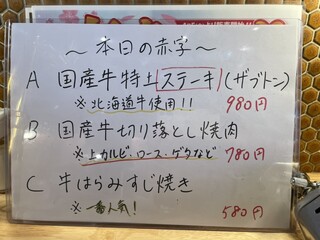 ～本日の赤字～
A 国産牛特上ステーキ(ザブトン)
※北海道牛使用!! 980円
B 国産牛切り落とし焼肉
※上カルビ・ロース・ゲタなど 780円
C 牛はらみすじ焼き
※一番人気! 580円